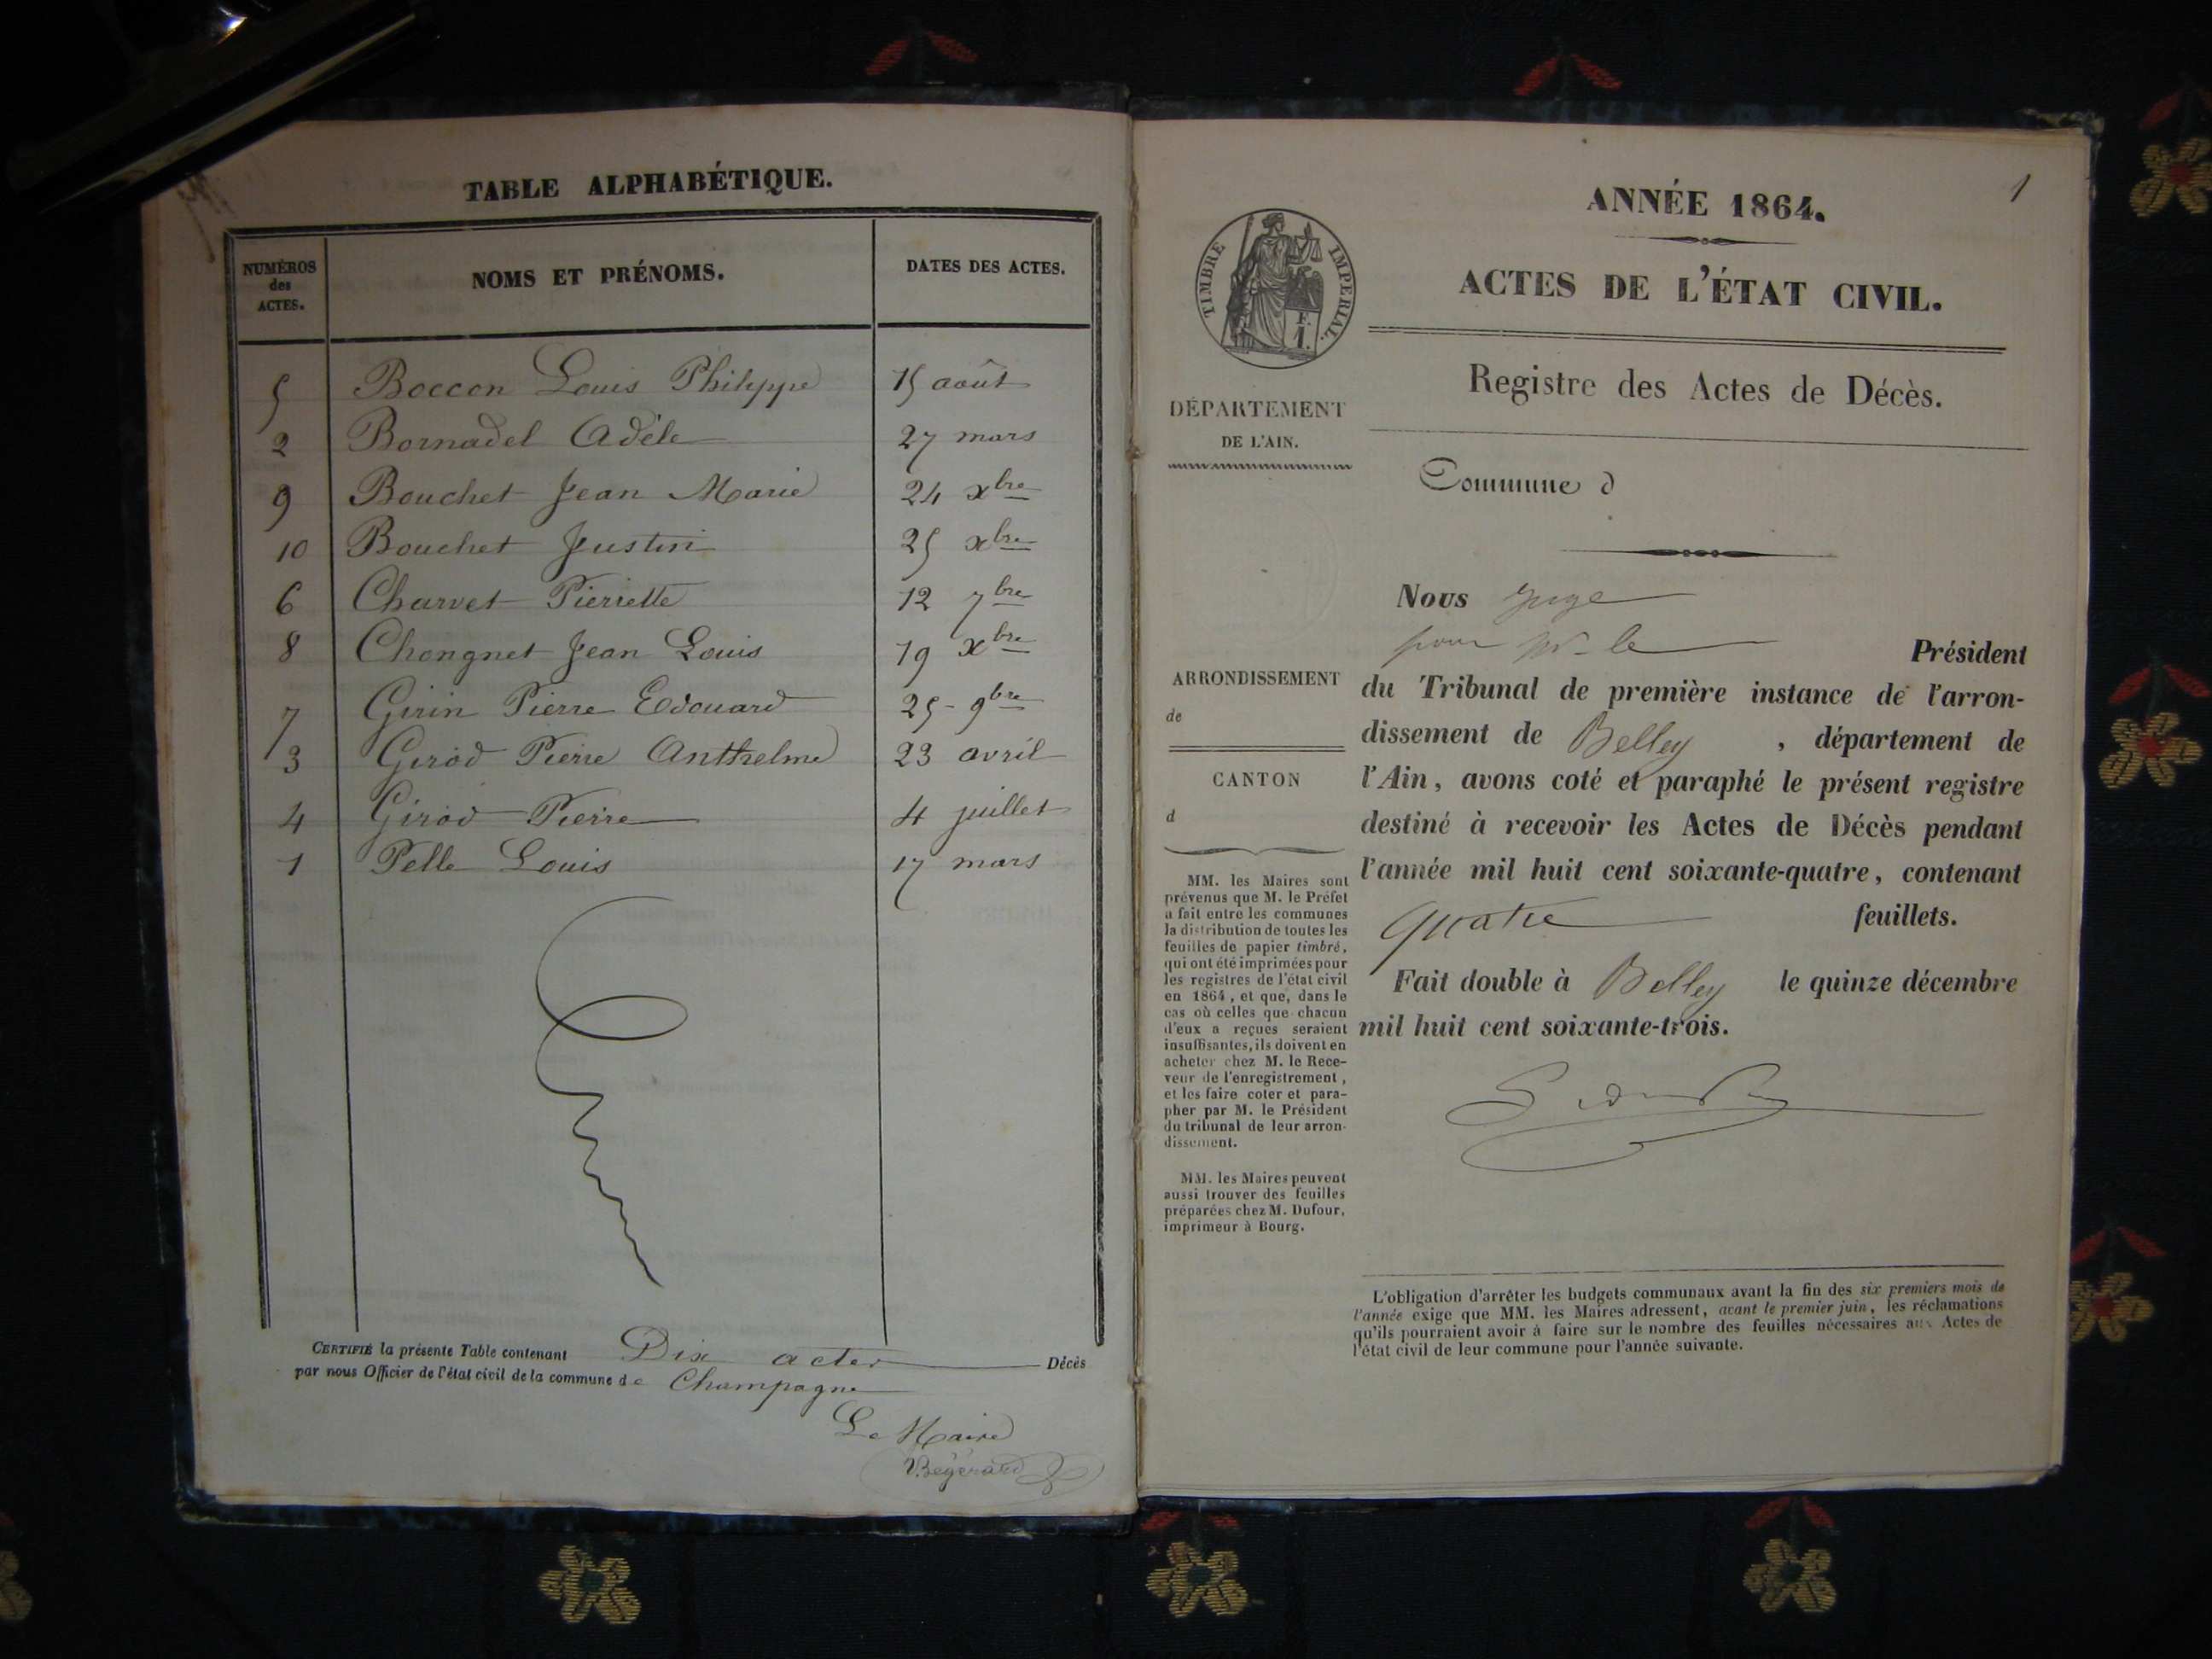 TABLE ALPHABÉTIQUE.
NUMÉROS des ACTES. NOMS ET PRÉNOMS. DATES DES ACTES.
5 Boccon Louis Philippe 15 août
2 Bornadel Adèle 27 mars
9 Bouchet Jean Marie 24 xbre
10 Bouchet Justin 25 xbre
6 Charvet Pierrette 12 7bre
8 Chongnet Jean Louis 19 Xbre
7 Girin Pierre Edouard 25 - 9bre
3 Girod Pierre Anthelme 23 avril
4 Girod Pierre 4 juillet
1 Pelle Louis 17 mars
CERTIFIÉ la présente Table contenant Dix actes Décès
par nous Officier de l'état civil de la commune de Champagne
Le Maire
1
ANNÉE 1864.
TIMBRE IMPERIAL.
F.
1.
ACTES DE L'ÉTAT CIVIL.
Registre des Actes de Décès.
DÉPARTEMENT
DE L'AIN.
Commune d
Nous Juge
pour Mr le Président
ARRONDISSEMENT
de
CANTON
d
du Tribunal de première instance de l'arron-
dissement de Belley , département de
l'Ain, avons coté et paraphé le présent registre
destiné à recevoir les Actes de Décès pendant
l'année mil huit cent soixante-quatre, contenant
quatre feuillets.
Fait double à Belley le quinze décembre
mil huit cent soixante-trois.
MM. les Maires sont
prévenus que M. le Préfet
a fait entre les communes
la distribution de toutes les
feuilles de papier timbré,
qui ont été imprimées pour
les registres de l'état civil
en 1864, et que, dans le
cas où celles que chacun
d'eux a reçues seraient
insuffisantes, ils doivent en
acheter chez M. le Rece-
veur de l'enregistrement,
et les faire coter et para-
pher par M. le Président
du tribunal de leur arron-
dissement.
MM. les Maires peuvent
aussi trouver des feuilles
préparées chez M. Dufour,
imprimeur à Bourg.
L'obligation d'arrêter les budgets communaux avant la fin des six premiers mois de
l'année exige que MM. les Maires adressent, avant le premier juin, les réclamations
qu'ils pourraient avoir à faire sur le nombre des feuilles nécessaires aux Actes de
l'état civil de leur commune pour l'année suivante.